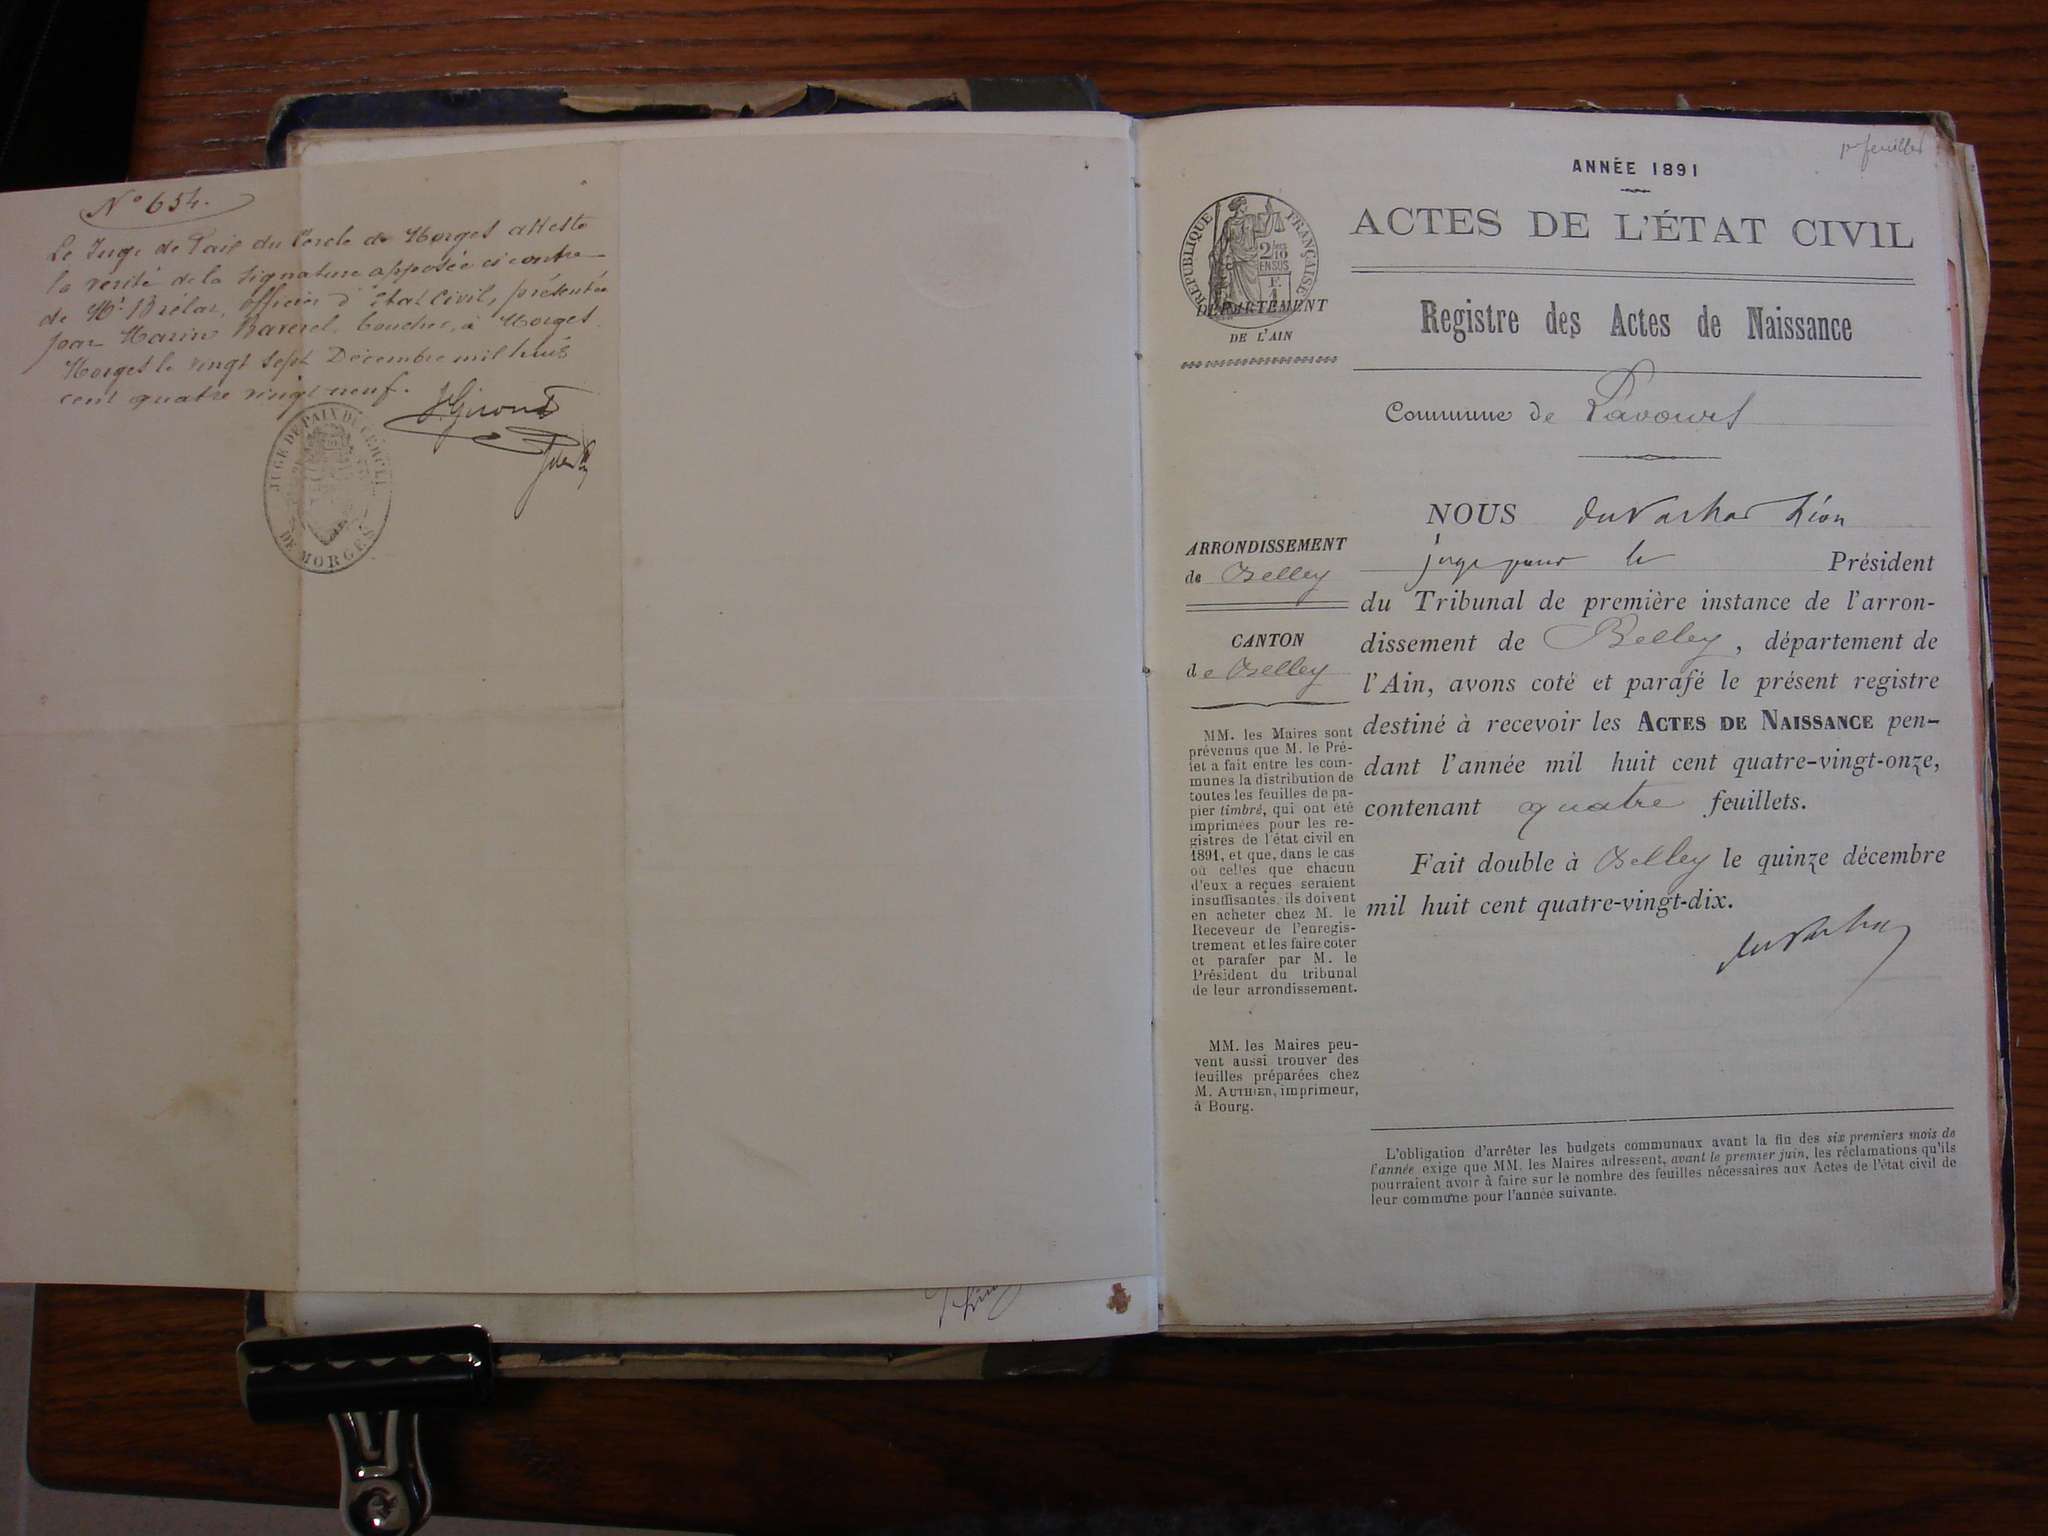 N° 654.
Le Juge de Paix du Cercle de Morges atteste
la vérité de la signature apposée ci contre
de Mr. Brélaz, officier d'état civil, présentée
par Marin Baverel, boucher, à Morges.
Morges le vingt sept Décembre mil huit
cent quatre vingt neuf.
JUGE DE PAIX DU CERCLE
DE MORGES
1er feuillet
ANNÉE 1891
ACTES DE L'ÉTAT CIVIL
RÉPUBLIQUE FRANÇAISE
2/10
EN SUS
DÉPARTEMENT
DE L'AIN
Registre des Actes de Naissance
Commune de Lavours
ARRONDISSEMENT
de Belley
CANTON
de Belley
MM. les Maires sont
prévenus que M. le Pré-
fet a fait entre les com-
munes la distribution de
toutes les feuilles de pa-
pier timbré, qui ont été
imprimées pour les re-
gistres de l'état civil en
1891, et que, dans le cas
où celles que chacun
d'eux a reçues seraient
insuffisantes, ils doivent
en acheter chez M. le
Receveur de l'enregis-
trement et les faire coter
et parafer par M. le
Président du tribunal
de leur arrondissement.
MM. les Maires peu-
vent aussi trouver des
feuilles préparées chez
M. AUTHIER, imprimeur,
à Bourg.
NOUS Léon
juge pour le Président
du Tribunal de première instance de l'arron-
dissement de Belley, département de
l'Ain, avons coté et parafé le présent registre
destiné à recevoir les ACTES DE NAISSANCE pen-
dant l'année mil huit cent quatre-vingt-onze,
contenant quatre feuillets.
Fait double à Belley le quinze décembre
mil huit cent quatre-vingt-dix.
L'obligation d'arrêter les budgets communaux avant la fin des six premiers mois de
l'année exige que MM. les Maires adressent, avant le premier juin, les réclamations qu'ils
pourraient avoir à faire sur le nombre des feuilles nécessaires aux Actes de l'état civil de
leur commune pour l'année suivante.